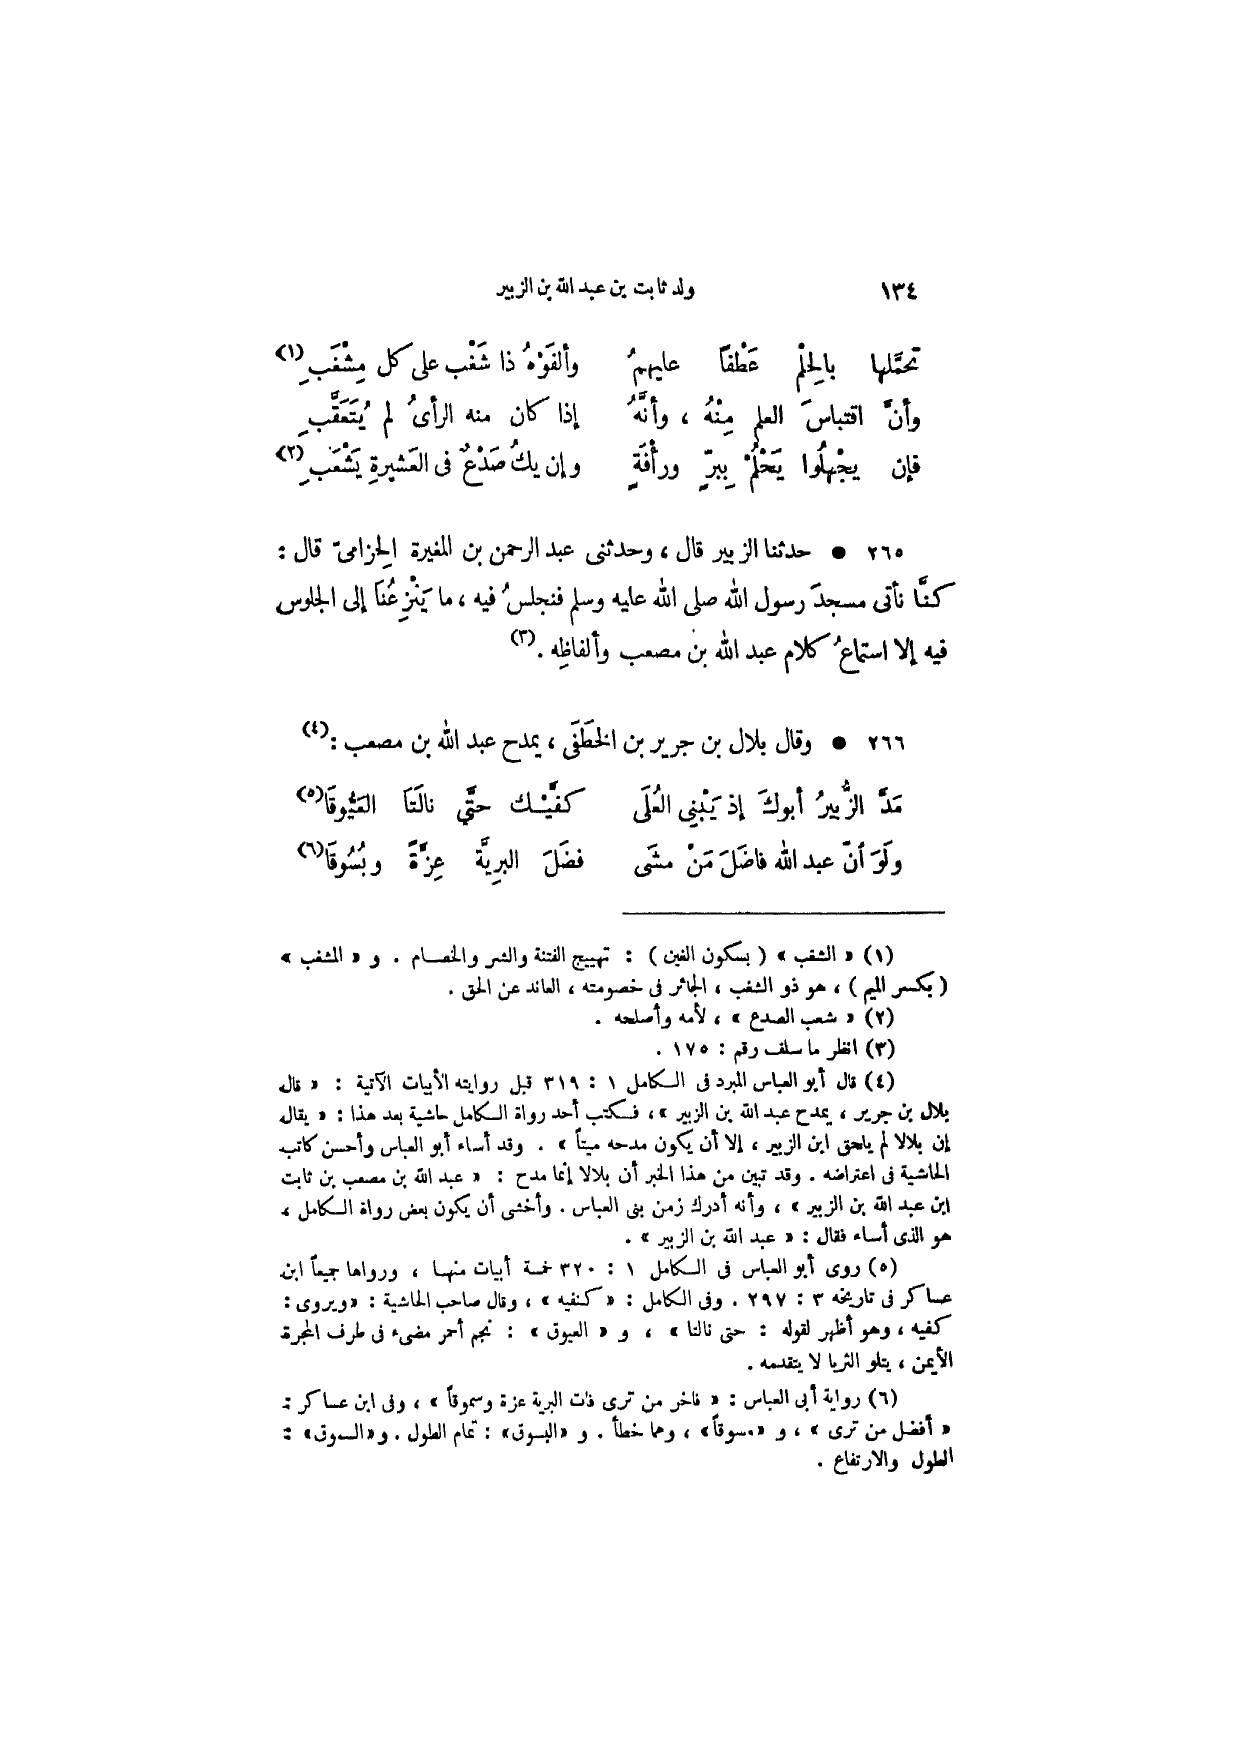 ١٣٤ ولد ثابت بن عبد الله بن الزبير
تحمَّلها بالحِلْمِ عَطْفًا عليهمُ وألفَوْهُ ذا شَغْب على كل مِشْغَبِ (١)
وأنَّ اقتباسَ العلمِ مِنْهُ ، وأنَّهُ إذا كان منه الرأىُ لم يُتَعَقَّبِ
فإن يجْهلُوا يَحْلُمْ بِبِرٍّ ورأفَةٍ وإن يكُ صَدْعٌ فى العَشيرةِ يَشْعَبِ (٢)
٢٦٥ ● حدثنا الزبير قال ، وحدثنى عبد الرحمن بن المغيرة الحِزامىّ قال :
كنَّا نأتى مسجدَ رسول الله صلى الله عليه وسلم فنجلسُ فيه ، ما يَنْزِعُنَا إلى الجلوس
فيه إلا استماعُ كلام عبد الله بن مصعب وألفاظِه . (٣)
٢٦٦ ● وقال بلال بن جرير بن الخَطَفَى ، يمدح عبد الله بن مصعب : (٤)
مَدَّ الزُّبيرُ أبوكَ إذ يَبْنِى العُلَى كفَّيْك حتَّى نالَتَا العَيُّوقَا (٥)
ولَوَ أنّ عبد الله فاضَلَ مَنْ مشَى فضَلَ البريَّة عِزَّةً وبُسُوقَا (٦)
(١) « الشغب » ( بسكون الغين ) : تهييج الفتنة والشر والخصام . و « المشغب »
( بكسر الميم ) ، هو ذو الشغب ، الجائر فى خصومته ، العاند عن الحق .
(٢) « شعب الصدع » ، لأمه وأصلحه .
(٣) انظر ما سلف رقم : ١٧٥ .
(٤) قال أبو العباس المبرد فى الكامل ١ : ٣١٩ قبل روايته الأبيات الآتية : « قال
بلال بن جرير ، يمدح عبد الله بن الزبير » ، فكتب أحد رواة الكامل حاشية بعد هذا : « يقال
إن بلالا لم يلحق ابن الزبير ، إلا أن يكون مدحه ميتاً » . وقد أساء أبو العباس وأحسن كاتب
الحاشية فى اعتراضه . وقد تبين من هذا الخبر أن بلالا إنما مدح : « عبد الله بن مصعب بن ثابت
ابن عبد الله بن الزبير » ، وأنه أدرك زمن بنى العباس . وأخشى أن يكون بعض رواة الكامل ،
هو الذى أساء فقال : « عبد الله بن الزبير » .
(٥) روى أبو العباس فى الكامل ١ : ٣٢٠ خمسة أبيات منها ، ورواها جميعاً ابن
عساكر فى تاريخه ٣ : ٢٩٧ . وفى الكامل : « كنفيه » ، وقال صاحب الحاشية : « ويروى :
كفيه ، وهو أظهر لقوله : حتى نالتا » ، و « العيوق » : نجم أحمر مضىء فى طرف المجرة
الأيمن ، يتلو الثريا لا يتقدمه .
(٦) رواية أبى العباس : « فاخر من ترى فات البرية عزة وسموقاً » ، وفى ابن عساكر :
« أفضل من ترى » ، و « وسوقاً » ، وهما خطأ . و « البسوق » : تمام الطول . و « السموق » :
الطول والارتفاع .